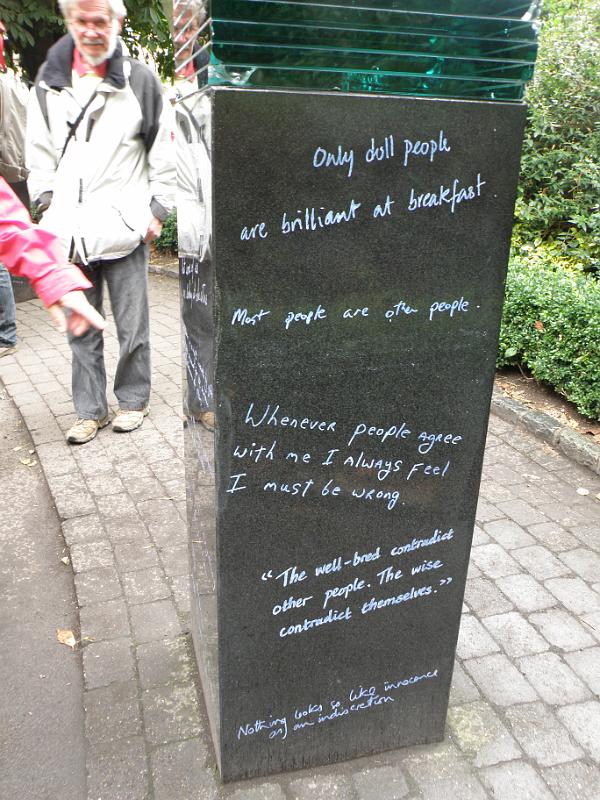 Only dull people
are brilliant at breakfast
Most people are other people.
Whenever people agree
with me I always feel
I must be wrong.
"The well-bred contradict
other people. The wise
contradict themselves."
Nothing looks so like innocence
as an indiscretion